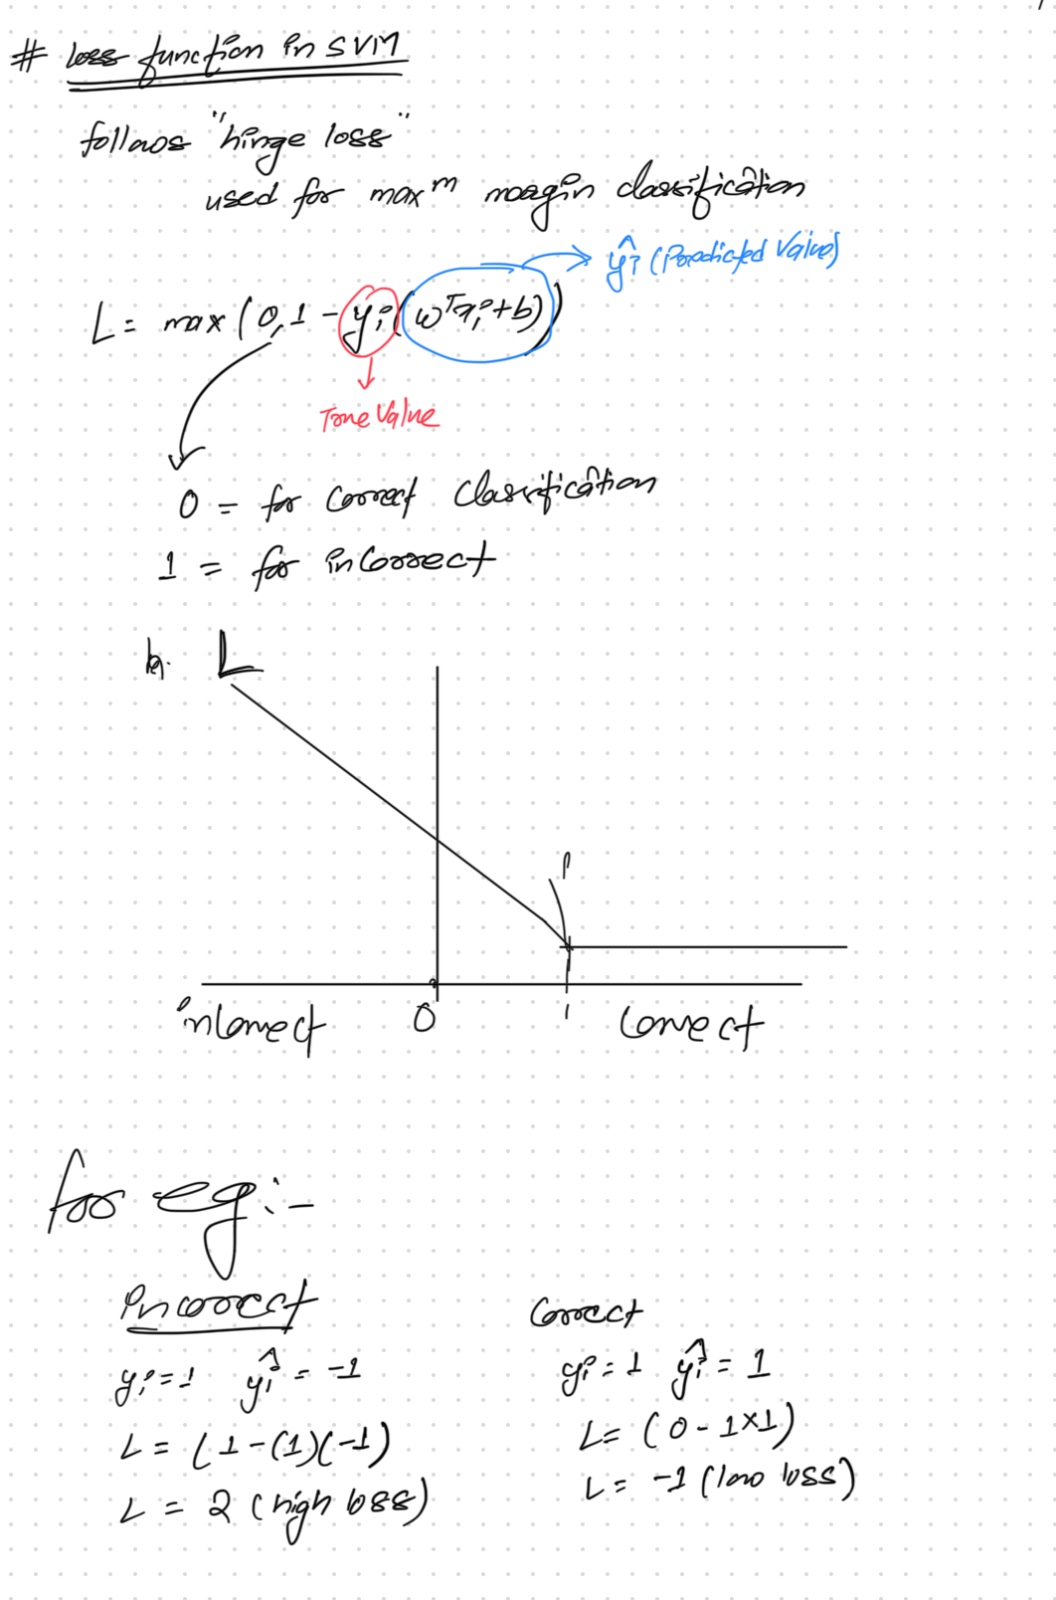 # loss function in SVM
follows "hinge loss"
used for maxᵐ margin classification
ŷi (Predicted Value)
L = max (0, 1 - yi (wᵀxi + b))
True Value
0 = for correct classification
1 = for incorrect
L
incorrect 0 1 correct
for eg:-
incorrect
correct
yi = 1 ŷi = -1
yi = 1 ŷi = 1
L = (1 - (1)(-1)
L = (0 - 1×1)
L = 2 (high loss)
L = -1 (low loss)